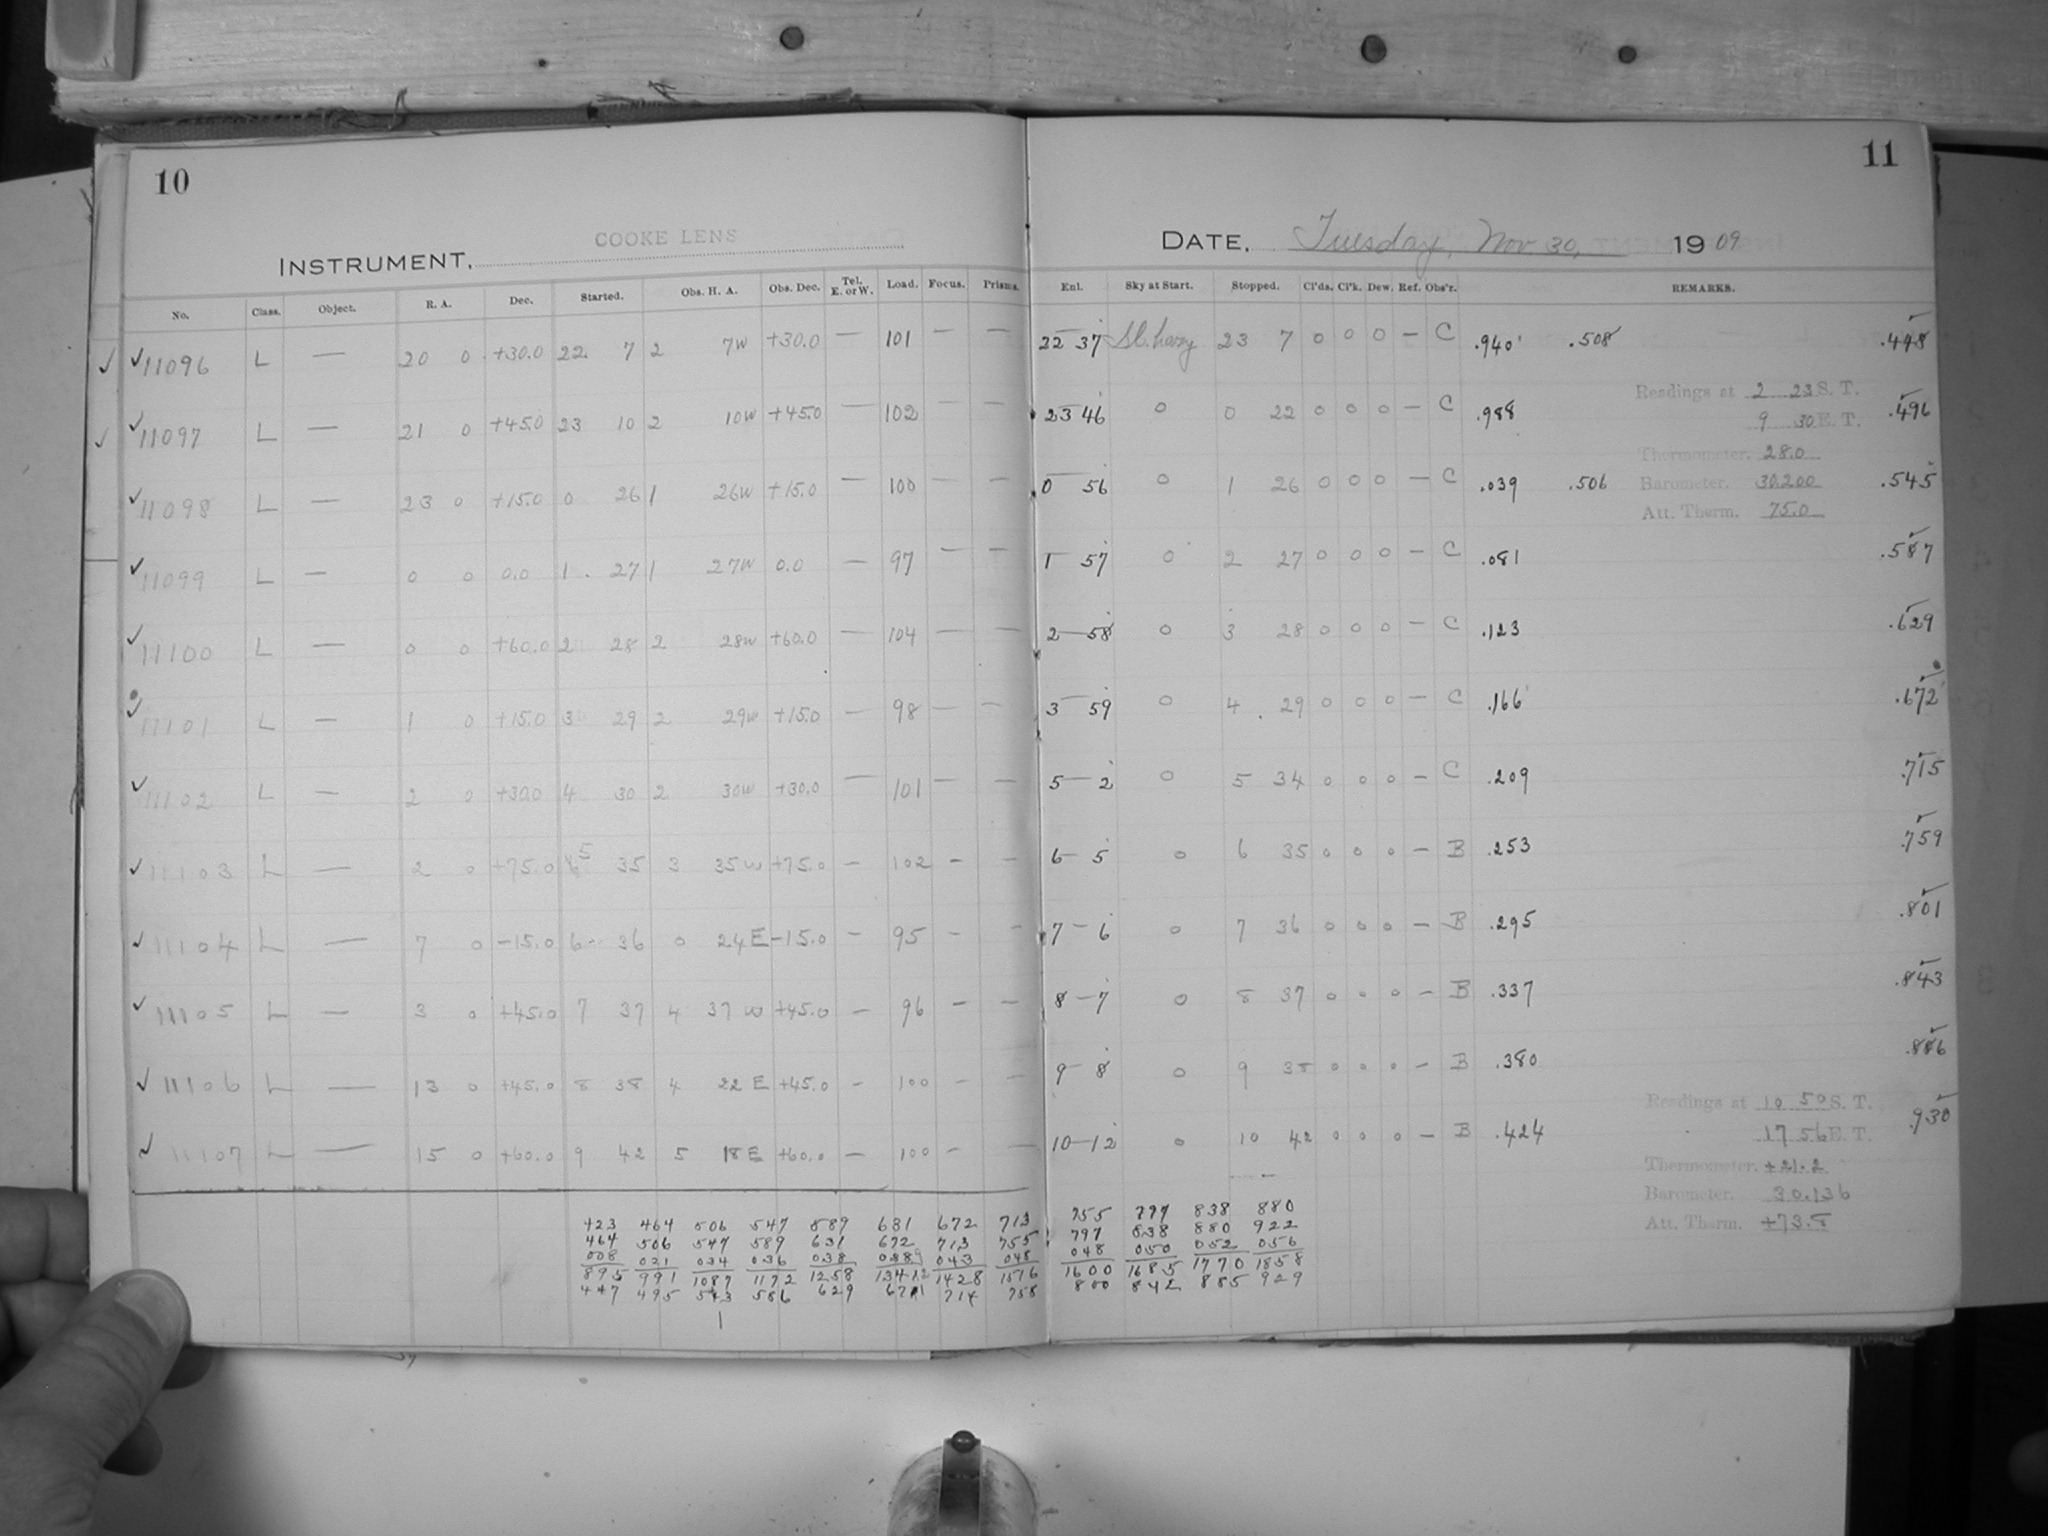 10
11
INSTRUMENT. COOKE LENS
DATE. Tuesday, Nov. 30, 1909
No. Class. Object. R. A. Dec. Started. Obs. H. A. Obs. Dec. Tel. E. or W. Load. Focus. Prisms. Enl. Sky at Start. Stopped. Cl'ds. Cl'k. Dew. Ref. Obs'r. REMARKS.
✓ ✓11096 L — 20 0 +30.0 22 7 2 7W +30.0 — 101 — — 22 37 Sl. hazy 23 7 0 0 0 — C .940 .508 .448
Readings at 2 23 S. T.
✓ ✓11097 L — 21 0 +45.0 23 10 2 10W +45.0 — 102 — — 23 46 0 0 22 0 0 0 — C .988 .496
9 30 E. T.
Thermometer. 28.0
✓11098 L — 23 0 +15.0 0 26 1 26W +15.0 — 100 — — 0 56 0 1 26 0 0 0 — C .039 .506 Barometer. 30.200 .545
Att. Therm. 75.0
✓11099 L — 0 0 0.0 1 27 1 27W 0.0 — 97 — — 1 57 0 2 27 0 0 0 — C .081 .587
✓11100 L — 0 0 +60.0 2 28 2 28W +60.0 — 104 — — 2 58 0 3 28 0 0 0 — C .123 .629
✓11101 L — 1 0 +15.0 3 29 2 29W +15.0 — 98 — — 3 59 0 4 29 0 0 0 — C .166 .672
✓11102 L — 2 0 +30.0 4 30 2 30W +30.0 — 101 — — 5 2 0 5 34 0 0 0 — C .209 .715
✓11103 L — 2 0 +75.0 5 35 3 35W +75.0 — 102 — — 6 5 0 6 35 0 0 0 — B .253 .759
✓11104 L — 7 0 -15.0 6 36 0 24E -15.0 — 95 — — 7 6 0 7 36 0 0 0 — B .295 .801
✓11105 L — 3 0 +45.0 7 37 4 37W +45.0 — 96 — — 8 7 0 8 37 0 0 0 — B .337 .843
✓11106 L — 13 0 +45.0 8 38 4 22E +45.0 — 100 — — 9 8 0 9 38 0 0 0 — B .380 .886
Readings at 10 50 S. T.
✓11107 L — 15 0 +60.0 9 42 5 18E +60.0 — 100 — — 10 12 0 10 42 0 0 0 — B .424 .930
17 56 E. T.
Thermometer. +21.2
Barometer. 30.136
Att. Therm. +73.5
423 464 506 547 589 631 672 713 755 797 838 880
464 506 547 589 631 672 713 755 797 838 880 922
008 021 034 036 038 043 048 048 050 052 056
895 991 1087 1172 1258 1428 1516 1600 1685 1770 1858
447 495 543 586 629 671 714 758 800 842 885 929
1